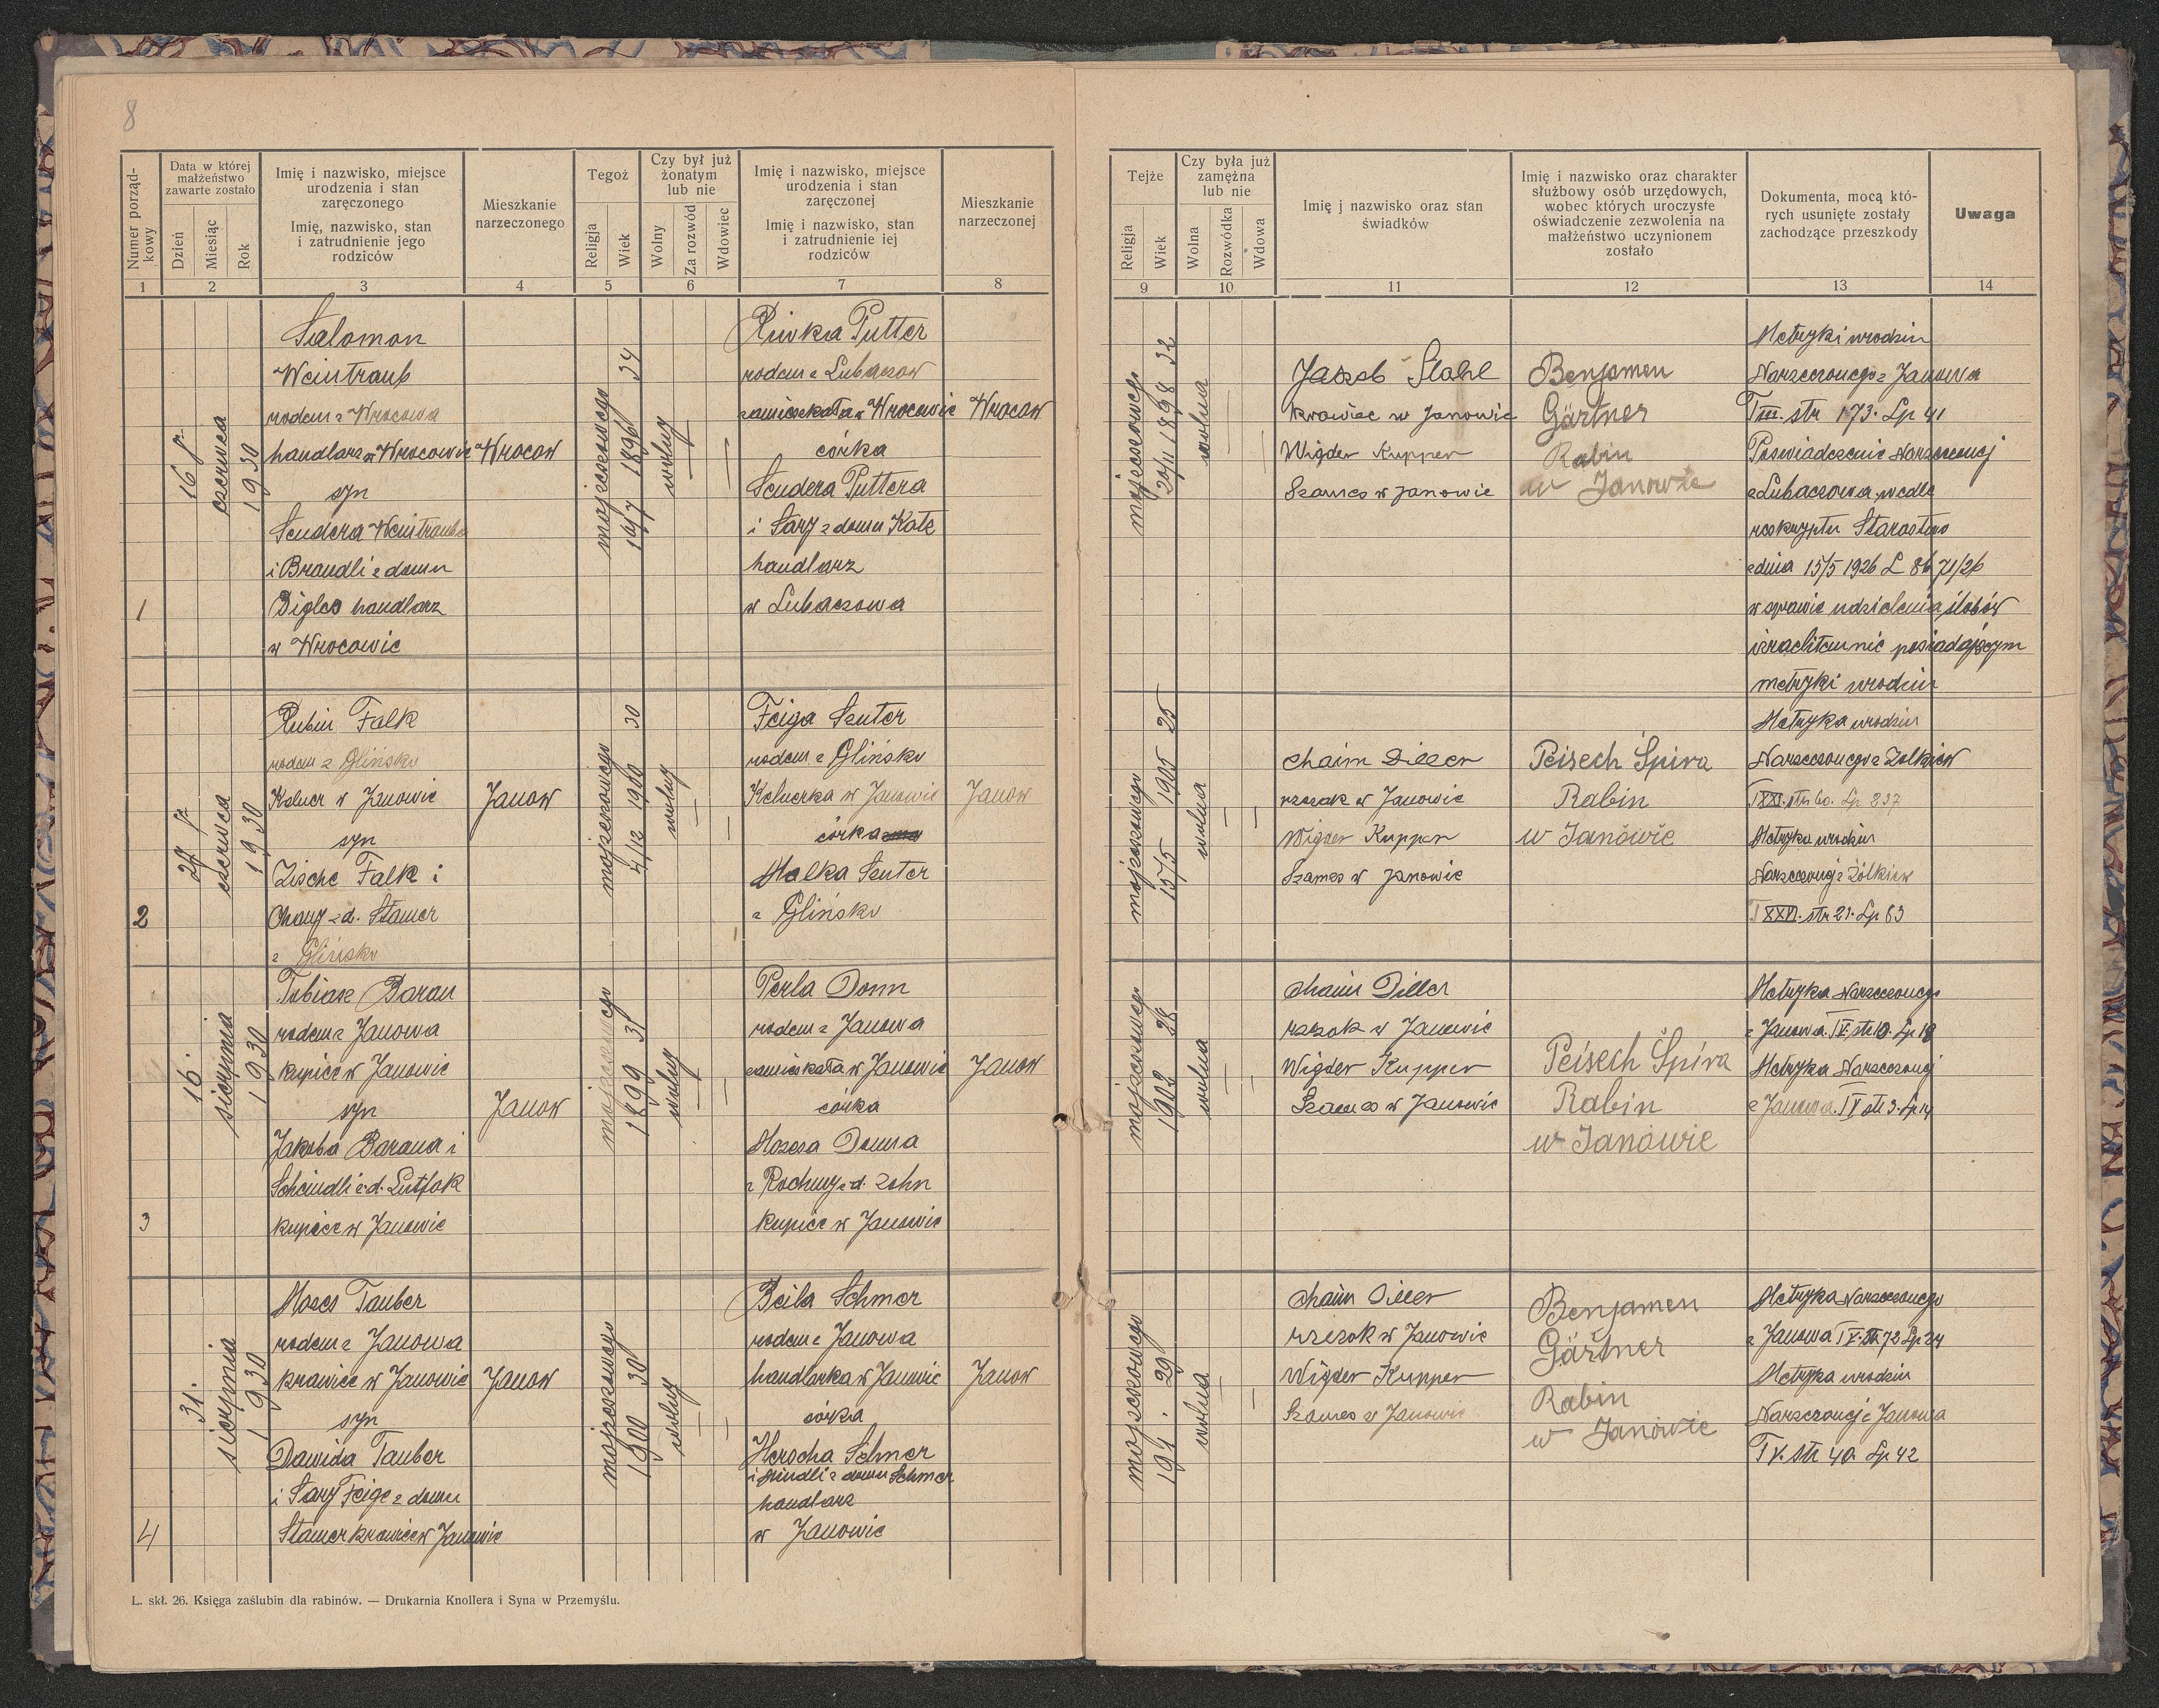 8
Numer porząd-
kowy
Data w której
małżeństwo
zawarte zostało
Dzień
Miesiąc
Rok
Imię i nazwisko, miejsce
urodzenia i stan
zaręczonego
Imię, nazwisko, stan
i zatrudnienie jego
rodziców
Mieszkanie
narzeczonego
Tegoż
Religja
Wiek
Czy był już
żonatym
lub nie
Wolny
Za rozwód
Wdowiec
Imię i nazwisko, miejsce
urodzenia i stan
zaręczonej
Imię i nazwisko, stan
i zatrudnienie iej
rodziców
Mieszkanie
narzeczonej
1 2 3 4 5 6 7 8
Tejże
Religja
Wiek
Czy była już
zamężna
lub nie
Wolna
Rozwódka
Wdowa
Imię j nazwisko oraz stan
świadków
Imię i nazwisko oraz charakter
służbowy osób urzędowych,
wobec których uroczyste
oświadczenie zezwolenia na
małżeństwo uczynionem
zostało
Dokumenta, mocą któ-
rych usunięte zostały
zachodzące przeszkody
Uwaga
9 10 11 12 13 14
1
16
czerwca
1930
Salomon
Weintraub
rodem z Wrocowa
handlarz w Wrocowie
syn
Sendera Weintrauba
i Brandli z domu
Bigles handlarz
w Wrocowie
Wrocow
mojżeszowego
14/7 1896 34
wolny
Riwka Putter
rodem z Lubaczow
zamieszkała w Wrocowie
córka
Sendera Puttera
i Sary z domu Katz
handlarz
w Lubaczowa
Wrocow
mojżeszowego
20/11 1898 32
wolna
Jakob Stahl
krawiec w Janowie
Wigder Kupper
Szames w Janowie
Benjamen
Gärtner
Rabin
w Janowie
Metryki urodzin
Narzeczonego z Janowa
T III. str 173. Lp 41
Poswiadczenie Narzeczonej
z Lubaczowa, wedle
reskryptu Starostwo
z dnia 15/5 1926 L 86 71/26
w sprawie udzielenia ślubów
izraelitom nie posiadającym
metryki urodzin
2
27
czerwca
1930
Rubin Falk
rodem z Glińsko
Kelner w Janowie
syn
Zische Falk i
Chany z d. Stamer
z Glińsko
Janow
mojżeszowego
4/12 1900 30
wolny
Feiga Szuter
rodem z Glińsko
Kelnerka w Janowie
córka
Malka Szuter
z Glińsko
Janow
mojżeszowego
15/5 1905 25
wolna
Chaim Diller
rzezak w Janowie
Wigder Kupper
Szames w Janowie
Peisech Spira
Rabin
w Janówie
Metryka urodzin
Narzeczonego z Zolkiew
T XXI. str 60. Lp 237
Metryka urodzin
Narzeczonej z Żółkiew
T XXVI. str 21. Lp 83
3
16.
sierpnia
1930
Tobiasz Baran
rodem z Janowa
kupiec w Janowie
syn
Jakoba Barana i
Scheindli z d. Lutfak
kupiec w Janowie
Janow
mojżeszowego
1899 31
wolny
Perla Donn
rodem z Janowa
zamieszkała w Janowie
córka
Mozesa Donna
z Rochmy z d. Zohn
kupiec w Janowie
Janow
mojżeszowego
1902 28
wolna
Chaim Diller
rzezak w Janowie
Wigder Kupper
Szames w Janowie
Peisech Spira
Rabin
w Janówie
Metryka Narzeczonego
z Janowa. T V. str 10. Lp 18
Metryka Narzeczonej
z Janowa. T V str 3. Lp 14
4
31.
sierpnia
1930
Mozes Tauber
rodem z Janowa
krawiec w Janowie
syn
Dawida Tauber
i Sary Feige z domu
Stamer krawiec w Janowie
Janow
mojżeszowego
1900 30
wolny
Beila Schmer
rodem z Janowa
handlarka w Janowie
córka
Herscha Schmer
i Mindli z domu Schmer
handlarz
w Janowie
Janow
mojżeszowego
191. 29
wolna
Chaim Diller
rzezak w Janowie
Wigder Kupper
Szames w Janowie
Benjamen
Gärtner
Rabin
w Janówie
Metryka Narzeczonego
z Janowa T V. str 72 Lp 24
Metryka urodzin
Narzeczonej z Janowa
T V. str 40. Lp 42
L. skł. 26. Księga zaślubin dla rabinów. — Drukarnia Knollera i Syna w Przemyślu.